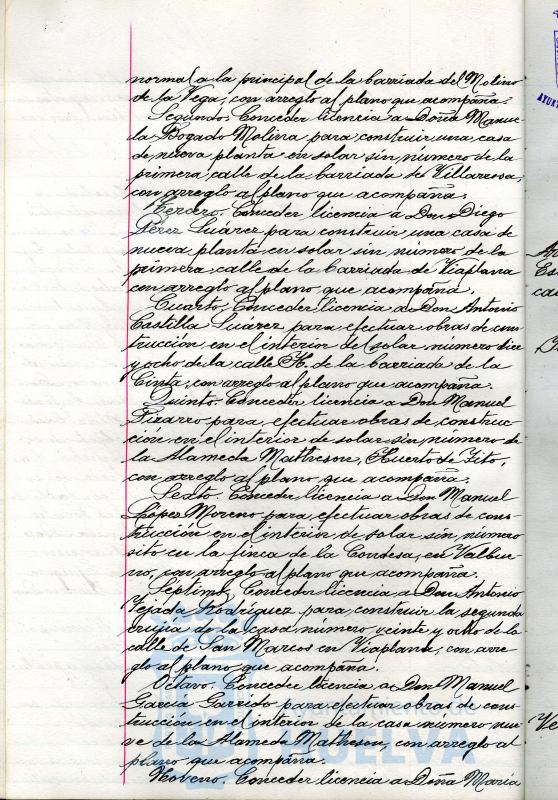 normal a la principal de la barriada del Molino
de la Vega, con arreglo al plano que acompaña.
Segundo. Conceder licencia a Doña Manue-
la Bogado Molina para construir una casa
de nueva planta en solar sin número de la
primera calle de la barriada de Villarrosa,
con arreglo al plano que acompaña.
Tercero. Conceder licencia a Don Diego
Pérez Suárez para construir una casa de
nueva planta en solar sin número de la
primera calle de la barriada de Viaplana
con arreglo al plano que acompaña.
Cuarto. Conceder licencia a Don Antonio
Castilla Suárez para efectuar obras de cons-
trucción en el interior del solar número diez
y ocho de la calle H. de la barriada de la
Cinta, con arreglo al plano que acompaña.
Quinto. Conceder licencia a Don Manuel
Pizarro para efectuar obras de construc-
ción en el interior de solar sin número de
la Alameda Matheson, Huerto de Tito,
con arreglo al plano que acompaña.
Sexto. Conceder licencia a Don Manuel
López Moreno para efectuar obras de cons-
trucción en el interior de solar sin número
sito en la finca de la Condesa, en Valbue-
no, con arreglo al plano que acompaña.
Septimo. Conceder licencia a Don Antonio
Tejada Rodríguez para construir la segunda
crujía de la casa número veinte y ocho de la
calle de San Marcos en Viaplana, con arre-
glo al plano que acompaña.
Octavo. Conceder licencia a Don Manuel
García Garrido para efectuar obras de cons-
trucción en el interior de la casa número nue-
ve de la Alameda Matheson, con arreglo al
plano que acompaña.
HUELVA
Noveno. Conceder licencia a Doña María